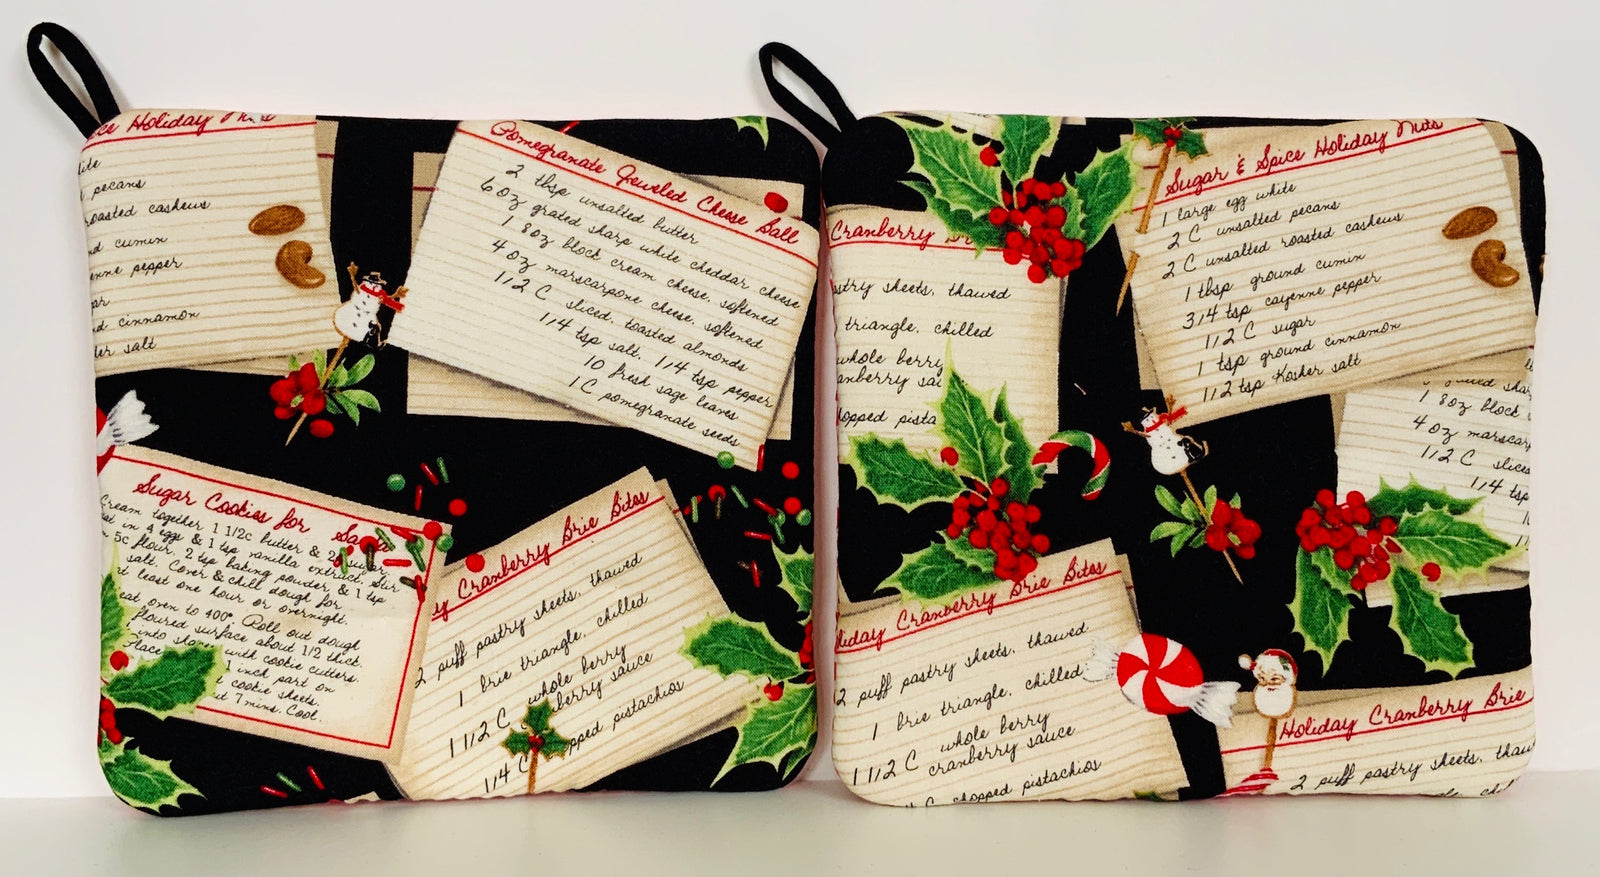 ce Holiday
pecans
roasted cashews
cumin
pepper
cinnamon
salt
Pomegranate Jeweled Cheese Ball
2 tbsp unsalted butter
6 oz grated sharp white cheddar cheese
1 8oz block cream cheese, softened
4 oz marscarpone cheese, softened
1/2 C sliced, toasted almonds
1/4 tsp salt, 1/4 tsp pepper
10 fresh sage leaves
1 C pomegranate seeds
Sugar Cookies for Santa
Cream together 1 1/2c butter & 2c sugar.
in 4 eggs & 1 tsp vanilla extract. Stir
5c flour, 2 tsp baking powder, & 1 tsp
salt. Cover & chill dough for
at least one hour or overnight.
oven to 400°. Roll out dough
floured surface about 1/2 thick.
into shapes with cookie cutters.
Place 1 inch part on
cookie sheets.
7 mins. Cool.
Cranberry Brie Bites
2 puff pastry sheets, thawed
1 brie triangle, chilled
1 1/2 C whole berry
berry sauce
1/4 C opped pistachios
Cranberry
pastry sheets, thawed
triangle, chilled
whole berry
anberry
opped pista
Sugar & Spice Holiday Nuts
1 large egg white
2 C unsalted pecans
2 C unsalted roasted cashews
1 tbsp ground cumin
3/4 tsp cayenne pepper
1/2 C sugar
1 tsp ground cinnamon
1 1/2 tsp Kosher salt
1 8oz block
4 oz marscarp
1/2 C slice
1/4 tsp
liday Cranberry Brie Bites
2 puff pastry sheets, thawed
1 brie triangle, chilled
1 1/2 C whole berry
cranberry sauce
C chopped pistachios
Holiday Cranberry Brie
2 puff pastry sheets, thaw